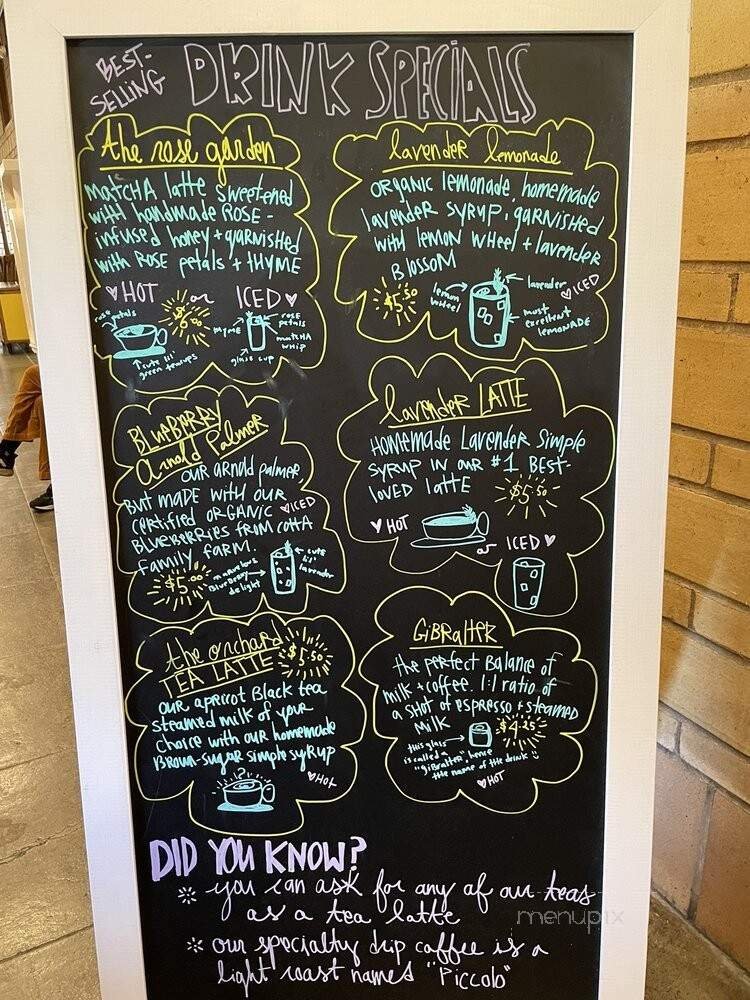 BEST-
SELLING
DRINK SPECIALS
the rose garden
MATCHA latte sweetened
with handmade ROSE-
infused honey + garnished
with ROSE petals + tHYME
♥ HOT or ICED ♥
rose petals
$6.00
↑ cute lil'
green teacups
thyme
rose
petals
matcHA
whip
glass cup
lavender lemonade
ORGANIC lemonade, homemade
lavender syrup, garnished
with lemon wheel + lavender
Blossom
$5.50
lemon
wheel
lavender
♥ ICED
most
excellent
lemonADE
BLueBERRY
Arnold Palmer
our arnold palmer
but made with our
certified organic ♥ICED
Blueberries from cotta
family farm.
$5.00
marvelous
Blueberry
delight
cute
lil'
lavender
lavender LATTE
Homemade Lavender Simple
syrup in our #1 Best-
loved latte
$5.50
♥ HOT
or ICED ♥
the orchard
TEA LATTE
$5.50
our apricot Black tea
steamed milk of your
choice with our homemade
Brown-sugar simple syrup
♥HOT
GiBRalteR
the perfect Balance of
milk + coffee. 1:1 ratio of
a shot of espresso + steamed
milk
$4.25
this glass
is called a
"giBralter", hence
the name of the drink
♥HOT
DID YOU KNOW?
you can ask for any of our teas
as a tea latte
our specialty drip coffee is a
light roast named "Piccolo"
menupix